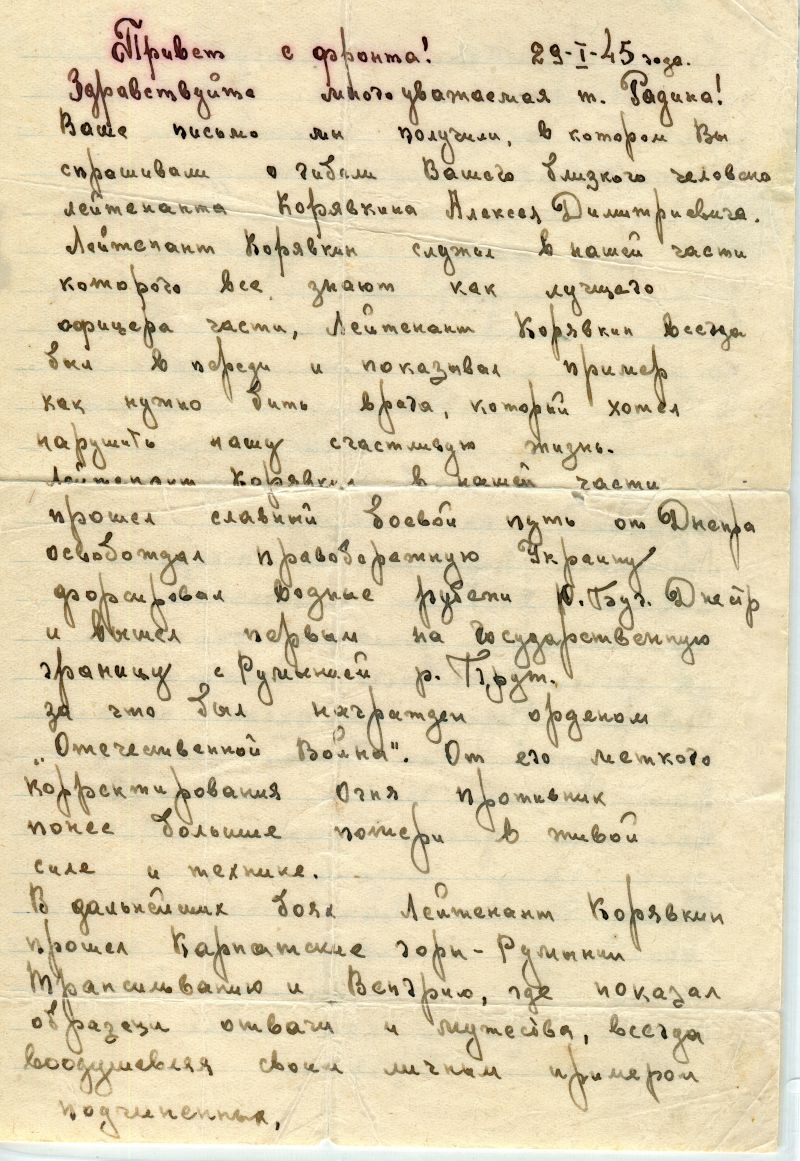 Привет с фронта! 29-I-45 года.
Здравствуйте много уважаемая т. Радина!
Ваше письмо мы получили, в котором Вы
спрашивали о гибели Вашего близкого человека
лейтенанта Корявкина Алексея Димитриевича.
Лейтенант Корявкин служил в нашей части
которого все знают как лучщего
офицера части, Лейтенант Корявкин всегда
был в переди и показывал пример
как нужно бить врага, который хотел
нарушить нашу счастливую жизнь.
Лейтенант Корявкин в нашей части
прошел славный боевой путь от Днепра
освобождал правобережную Украину
форсировал водные рубежи Ю. Буг. Днестр
и вышел первым на Государственную
границу с Румынией р. Прут.
за что был награжден орденом
„Отечественной Война". От его меткого
корректирования огня противник
понес большие потери в живой
силе и технике.
В дальнейших боях Лейтенант Корявкин
прошел Карпатские горы - Румынии
Трансильванию и Венгрию, где показал
образецы отваги и мужества, всегда
воодушевляя своим личным примером
подчиненных,